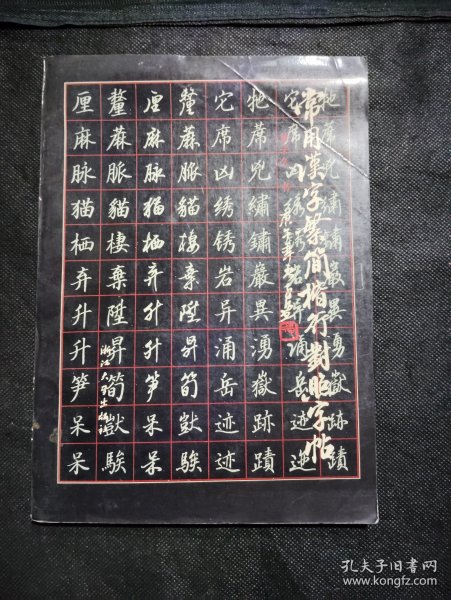 常用漢字繁简楷行對照字帖
厘 釐 厘 釐 它 牠 它 牠
麻 蔴 麻 蔴 席 蓆 席 蓆
脉 脈 脉 脈 凶 兇 凶 兇
猫 貓 猫 貓 绣 繡 绣 繡
栖 棲 栖 棲 锈 鏽 锈 鏽
弃 棄 弃 棄 岩 巖 岩 巖
升 陞 升 陞 异 異 异 異
升 昇 升 昇 涌 湧 涌 湧
笋 筍 笋 筍 岳 嶽 岳 嶽
呆 獃 呆 獃 迹 跡 迹 跡
呆 騃 呆 騃 迹 蹟 迹 蹟
浙江大學出版社
孔夫子旧书网
www.kongfz.com